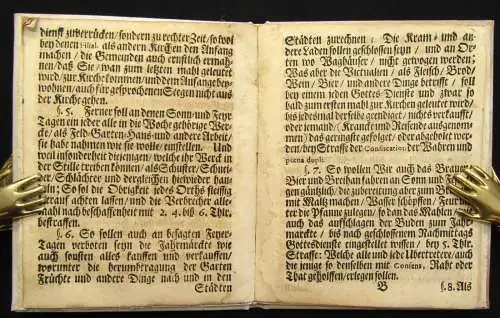 dienst zuverrücken / sondern zu rechter Zeit / so wol
bey denen Filial. als andern Kirchen den Anfang
machen / die Gemeinden auch ernstlich ermah-
nen / daß Sie / wan zum letzten mahl geleutet
wird / zur Kirche kommen / und dem Anfang bey-
wohnen / auch für gesprochenen Seegen nicht aus
der Kirche gehen.
§. 5. Ferner soll an denen Sonn- und Feyr
Tagen ein jeder alle in die Woche gehörige Wer-
cke / als Feld-Garten-Haus-und andere Arbeit /
sie habe nahmen wie sie wolle / einstellen. Und
weil insonderheit diejenige / welche ihr Werck in
der Stille treiben können / als Schuster / Schnei-
der Schlächter und dergleichen hierwieder han-
deln; So sol die Obrigkeit jedes Orths fleissig
hierauf achten lassen / und die Verbrecher alle-
mahl nach beschaffenheit mit 2. 4. biß 6. Thlr.
bestraffen.
§. 6. So sollen auch an besagten Feyer-
Tagen verboten seyn die Jahrmärckte wie
auch sonsten alles kauffen und verkauffen /
worunter die herumbtragung der Garten
Früchte und andere Dinge nach und in den
Städten
Städten zurechnen; Die Kram- und an-
dere Laden sollen geschlossen seyn / und an Or-
ten wo Waghäuser / nicht gewogen werden;
Was aber die Victualien / als Fleisch / Brod /
Wein / Bier / und andere Dinge betrifft / soll
bey einem jeden Gottes-Dienste und zwar so
bald zum ersten mahl zur Kirchen geleutet wird /
bis jedesmal derselbe geendiget / nichts verkaufft
oder jemand / (Krancke und Reisende ausgenom-
men) das geringste gefolget / oder abgeholet wer-
den / bey Straffe der Confiscation der Wahren und
pœna dupli.
§. 7. So wollen Wir auch das Brauen
Bier und Breyhan fahren an Sonn- u. Feyer-Ta-
gen gäntzlich / die zubereitung aber zum Brauen
mit Maltz machen / Wasser schöpffen / Feur un-
ter die Pfanne zulegen / so dan das Mahlen / wie
auch das aufschlagen der Buden zum Jahr-
märckte / bis nach geschlossenem Nachmittags
Gottesdienste eingestellet wissen / bey 5. Thlr.
Straffe: Welche alle und jede Ubertretere / auch
die jenige so denselben mit Consens, Raht oder
That geholffen / erlegen sollen.
B §. 8. Als